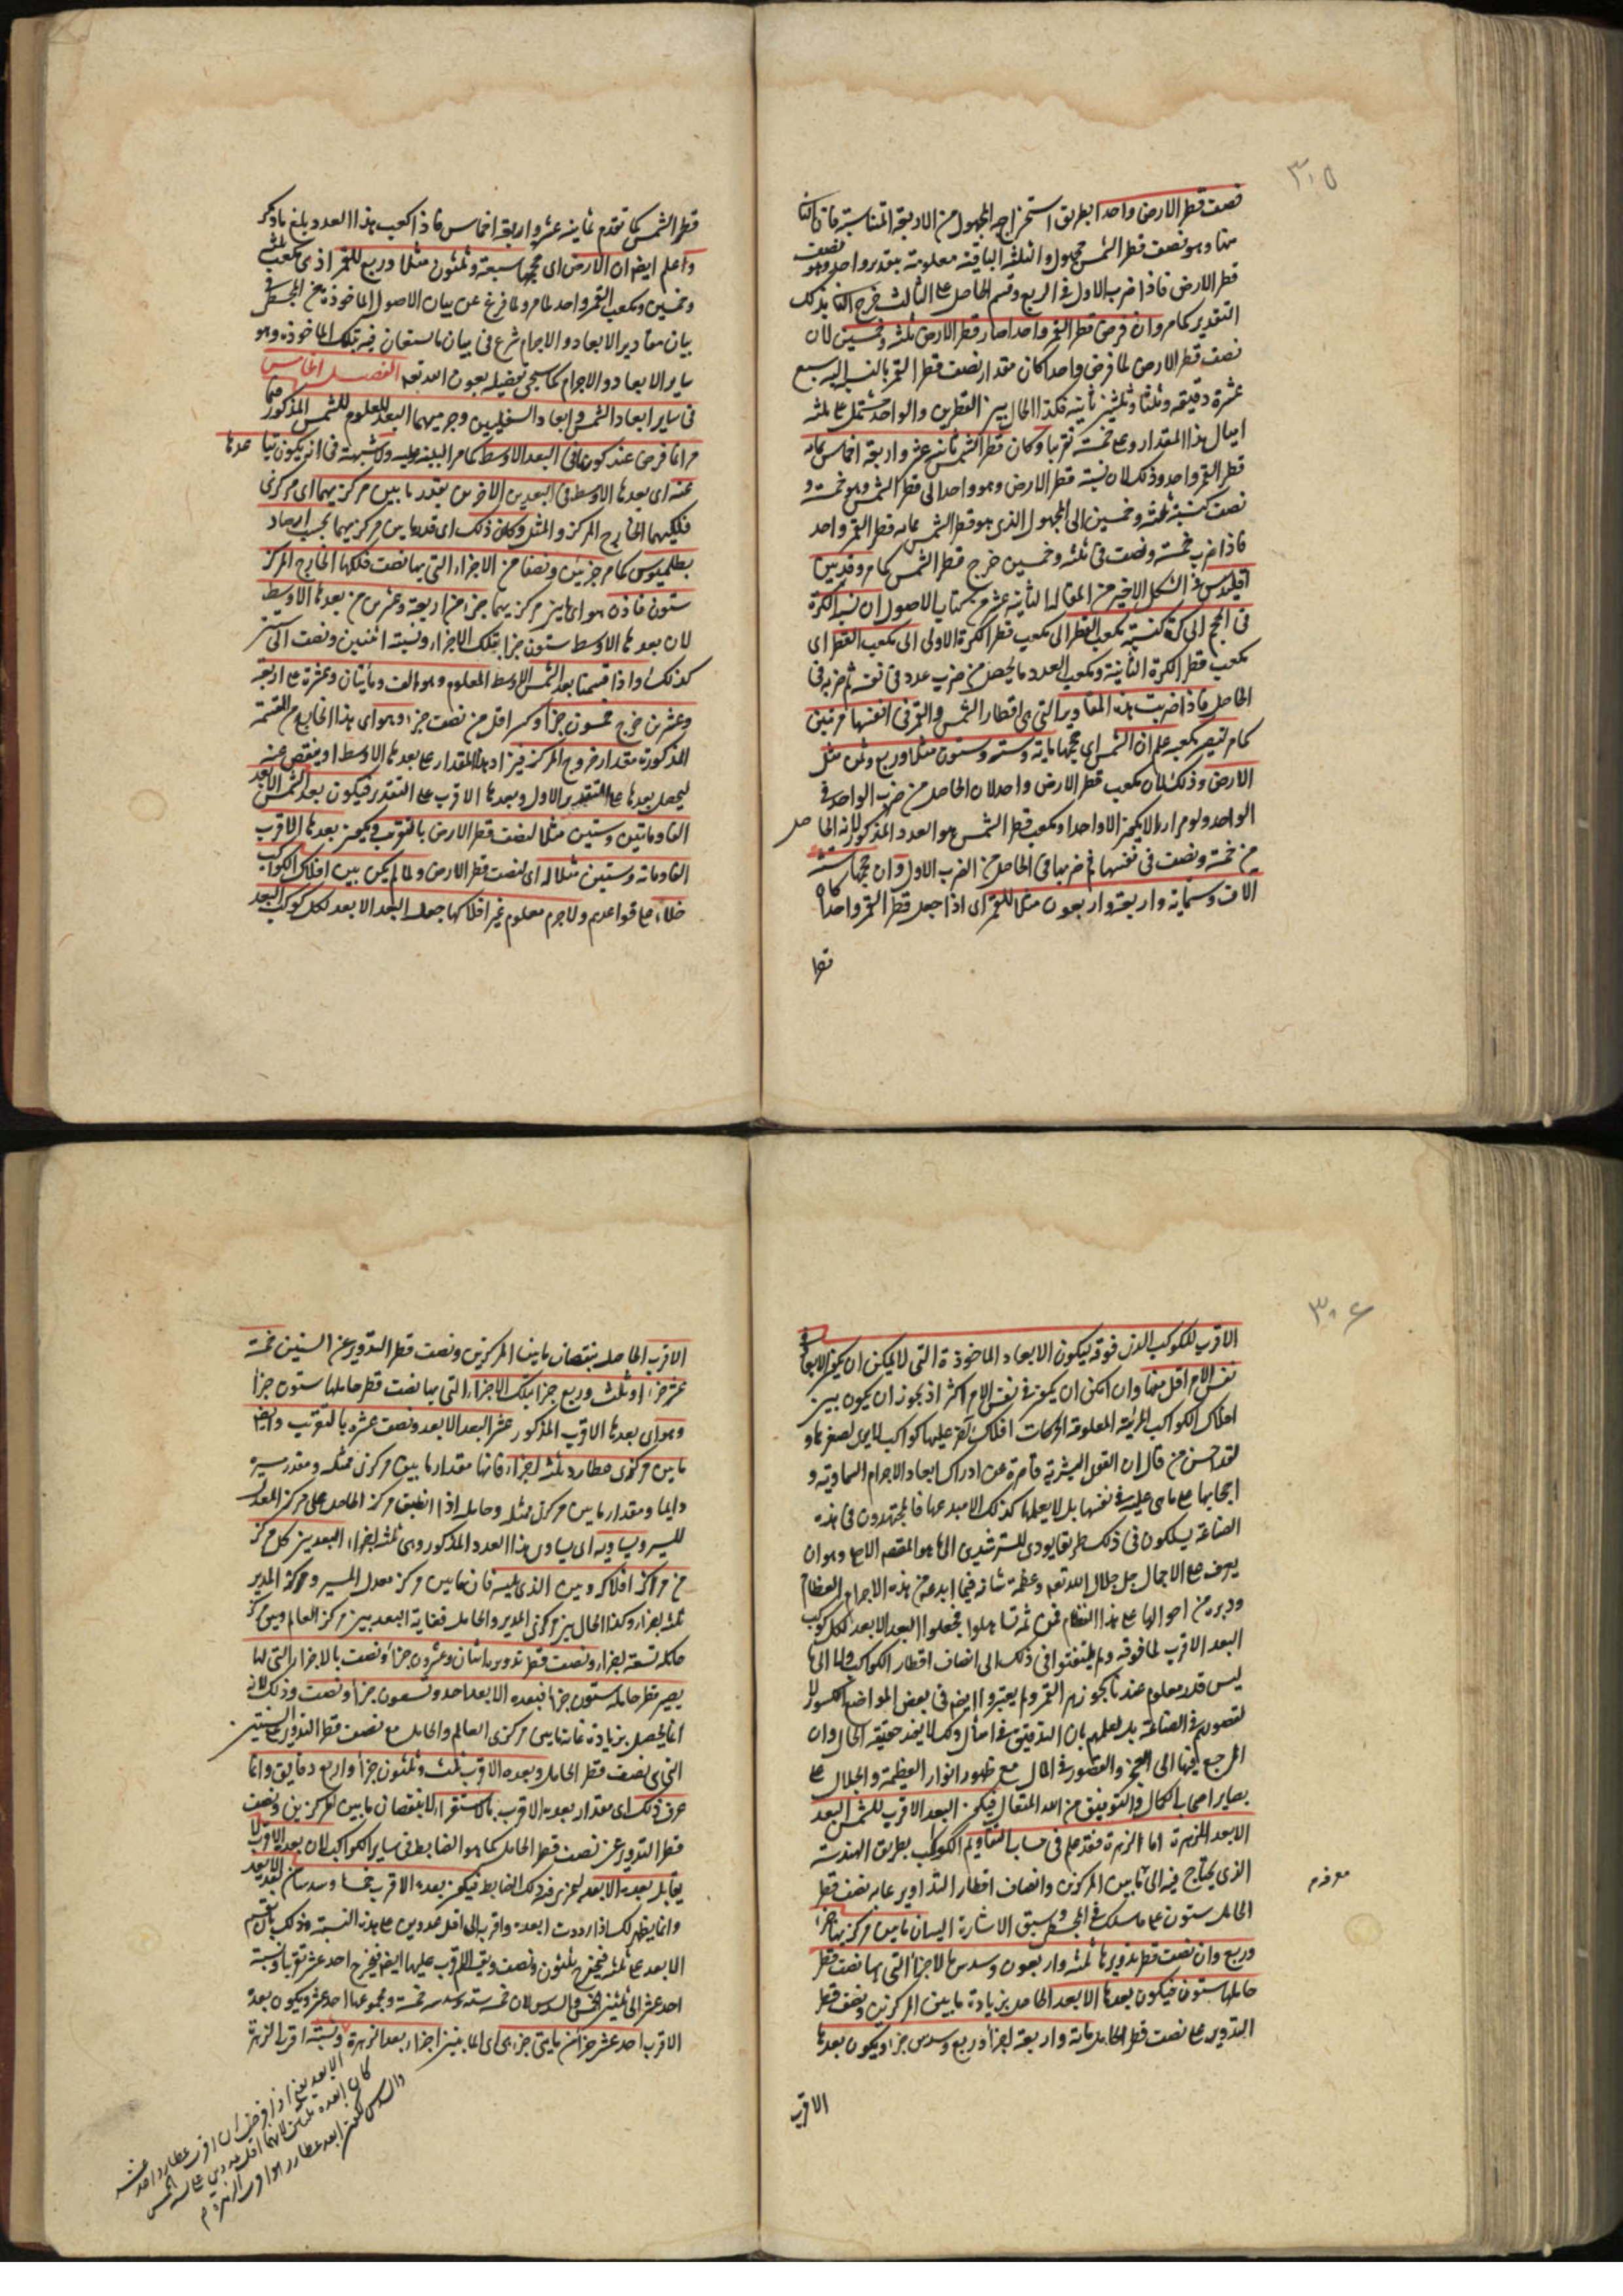 ٣٠٥
نصف قطر الارض واحدا بطريق استخراج المجهول من الاربعة المتناسبة فان الثالث
منها وهو نصف قطر الشمس مجهول والثلثة الباقية معلومة بتقدير واحد وهو نصف
قطر الارض فاذا ضرب الاول في الرابع وقسم الحاصل على الثالث خرج الثا بذلك
التقدير كما مر وان فرض قطر القمر واحدا صار قطر الارض ثلثة وخمسين لان
نصف قطر الارض لما فرض واحدا كان مقدار نصف قطر القمر بالنسبة اليه سبع
عشرة دقيقة وثلثا وثلثين ثانية فكذا الحال بين القطرين والواحد مشتمل على ثلثة
امثال هذا المقدار وعلى خمسة تقريبا وكان قطر الشمس ثمانية عشر واربعة اخماس بما به
قطر القمر واحد وذلك لان نسبة قطر الارض وهو واحد الى قطر الشمس وهو خمسة و
نصف كنسبة ثلثة وخمسين الى المجهول الذي هو قطر الشمس بما به قطر القمر واحد
فاذا ضرب خمسة ونصف في ثلثة وخمسين خرج قطر الشمس كما مر وقد بين
اقليدس في الشكل الاخير من المقالة الثانية عشر من كتاب الاصول ان نسبة الكرة
في الحجم الى كرة كنسبة مكعب القطر الى مكعب قطر الكرة الاولى الى مكعب القطر اي
مكعب قطر الكرة الثانية ومكعب العدد ما يحصل من ضرب عدد في نفسه ثم ضربه في
الحاصل فاذا ضربت هذه المقادير التي هي اقطار الشمس والقمر في انفسها مرتين
كما مر لتصير مكعبة علم ان الشمس اي حجمها مائة وستة وستون مثلا وربع وثمن مثل
الارض وذلك لان مكعب قطر الارض واحد لان الحاصل من ضرب الواحد في
الواحد ولو مرارا لا يكون الا واحدا ومكعب قطر الشمس هو العدد المذكور لانه الحاصل
من خمسة ونصف في نفسها ثم ضربها في الحاصل من الضرب الاول وان حجمها ستة
الاف وستمائة واربعة واربعون مثلا للقمر اي اذا جعل قطر القمر واحدا كان
قطر
قطر الشمس كما تقدم ثمانية عشر واربعة اخماس فاذا كعب هذا العدد بلغ ما ذكر
واعلم ايضا ان الارض اي حجمها سبعة وثلثون مثلا وربع للقمر اذ مكعب ثلثة
وخمسين ومكعب القمر واحد لما مر ولما فرغ عن بيان الاصول الماخوذة من المجسطي في
بيان مقادير الابعاد والاجرام شرع في بيان ما يستعان فيه بتلك الماخوذة وهو
ساير الابعاد والاجرام كما سيجئ تفصيله بعون الله تعالى الفصل الخامس
في ساير ابعاد الشمس وابعاد السفليين وجرميهما البعد المعلوم للشمس المذكور
مر انما فرض عند كونها في البعد الاوسط كما مر البينة عليه ولا شبهة في انه يكون تباعدها
عنه اي بعدها الاوسط في البعدين الاخرين بقدر ما بين مركزيهما اي مركزي
فلكيهما الخارج المركز والممثل وكان ذلك اي قدر ما بين مركزيهما بحسب ارصاد
بطلميوس كما مر جزئين ونصفا من الاجزاء التي بها نصف فلكها الخارج المركز
ستون فاذن هو اي ما بين مركزيهما جزء من اربعة وعشرين من بعدها الاوسط
لان بعدها الاوسط ستون جزءا بتلك الاجزاء ونسبة اثنين ونصف الى ستين
كذلك واذا قسمنا بعد الشمس الاوسط المعلوم وهو الف ومائتان وعشرة على اربعة
وعشرين خرج خمسون جزءا وكسر اقل من نصف جزء وهو اي هذا الخارج من القسمة
المذكورة مقدار خروج المركز فيزاد هذا المقدار على بعدها الاوسط او ينقص عنه
ليحصل بعدها على التقدير الاول وبعدها الاقرب على التقدير فيكون بعد الشمس الابعد
الفا ومائتين وستين مثلا لنصف قطر الارض بالتقريب ويكون بعدها الاقرب
الفا ومائة وستين مثلا له اي لنصف قطر الارض ولما لم يكن بين افلاك الكواكب
خلاء على قواعدهم ولا جرم معلوم غير افلاكها جعل البعد الابعد لكل كوكب البعد
٣٠٦
الاقرب للكوكب الذي فوقه ليكون الابعاد الماخوذة التي لا يمكن ان يكون الابعاد في
نفس الامر اقل منها وان امكن ان يكون في نفس الامر اكثر اذ يجوز ان يكون بين
افلاك الكواكب المرئية المعلومة الحركات افلاك اخر عليها كواكب لا يرى لصغرها و
لقد احسن من قال ان العقول البشرية قاصرة عن ادراك ابعاد الاجرام السماوية و
احجامها على ما هي عليه في نفسها بل لا يعلمها كذلك الا مبدعها فالمجتهدون في هذه
الصناعة يسلكون في ذلك طريقا يؤدي المسترشدين الى ما هو المقصد الاعلى وهو ان
يعرف على الاجمال جل جلال الله تعالى وعظمة شانه فيما ابدعه من هذه الاجرام العظام
ودبره من احوالها على هذا النظام فمن ثم تساهلوا فجعلوا البعد الابعد لكل كوكب
البعد الاقرب لما فوقه ولم يلتفتوا في ذلك الى انصاف اقطار الكواكب ولا الى ما
ليس قدره معلوم عندنا كجوزهر القمر ولم يعتبروا ايضا في بعض المواضع الكسور لا
لقصورهم في الصناعة بل لعلمهم بان التدقيق في امثال ذلك لا يفيد حقيقة الحال وان
المرجع فيها الى العجز والقصور في المآل مع ظهور انوار العظمة والجلال على
بصاير اصحاب الكمال والتوفيق من الله المتعال فيكون البعد الاقرب للشمس البعد
الابعد للزهرة اما الزهرة فقد علم في حساب التقاويم الكواكب بطريق الهندسة
الذي يحتاج فيه الى ما بين المركزين وانصاف اقطار التداوير بما به نصف قطر
الحامل ستون على ما سلك في المجسطي وسبق الاشارة اليه ان ما بين مركزيها جزء
وربع وان نصف قطر تدويرها ثلثة واربعون وسدس بالاجزاء التي بها نصف قطر
حاملها ستون فيكون بعدها الابعد الحاصل بزيادة ما بين المركزين ونصف قطر
التدوير على نصف قطر الحامل مائة واربعة اجزاء وربع وسدس جزء ويكون بعدها
الاقرب
الاقرب الحاصل بنقصان ما بين المركزين ونصف قطر التدوير عن الستين خمسة
عشر جزءا وثلث وربع جزء بتلك الاجزاء التي بها نصف قطر حاملها ستون جزءا
وهو اي بعدها الاقرب المذكور عشر البعد الابعد ونصف عشره بالتقريب وايضا
ما بين مركزي عطارد ثلثة اجزاء فانها مقدار ما بين مركزي ممثله ومدير مسيره
دائما ومقدار ما بين مركزي ممثله وحامله اذا انطبق مركز الحامل على مركز المعدل
للمسير ويساويه اي يساوي هذا العدد المذكور وهي ثلثة اجزاء البعد بين كل مركز
من مراكز افلاكه وبين الذي يليه فان ما بين مركز معدل المسير ومركز المدير
ثلثة اجزاء وكذا الحال بين مركزي المدير والحامل فغاية البعد بين مركز العالم وبين مركز
حامله تسعة اجزاء ونصف قطر تدويره اثنان وعشرون جزءا ونصف بالاجزاء التي لها
يصير قطر حامله ستون جزءا فبعده الابعد احد وتسعون جزءا ونصف وذلك لانه
انما يحصل بزيادة غاية ما بين مركزي العالم والحامل مع نصف قطر التدوير على الستين
التي هي نصف قطر الحامل وبعده الاقرب ثلث وثلثون جزءا واربع دقايق وانما
عرف ذلك اي مقدار بعده الاقرب بالاستقراء لا بنقصان ما بين المركزين ونصف
قطر التدوير عن نصف قطر الحامل كما هو الضابط في ساير الكواكب لان بعده الاقرب لا
يقابل بعده الابعد ليجري فيه ذلك الضابط فيكون بعده الاقرب خمسا وسدسا من بعده الابعد
وانما يظهر لك اذا رددت ابعده واقربه الى اقل عددين على هذه النسبة وذلك بان تقسم
الابعد على ثلثة فيخرج ثلثون ونصف ويقسم الاقرب عليها ايضا فيخرج احد عشر تقريبا ونسبة
احد عشر الى ثلثين الخمس والسدس لان خمسه ستة وسدسه خمسة ومجموعهما احد عشر ويكون بعده
الاقرب احد عشر جزءا من ثلثين جزءا هي الى ما بين اجزاء بعد الزهرة ونسبة اقرب الزهرة
الابعد يعني اذا فرض ان اقرب عطارد احد عشر
كان ابعده ثلثين لانهما اقل عددين على نسبة الخمس
والسدس لكن ابعد عطارد هو اقرب الزهرة م